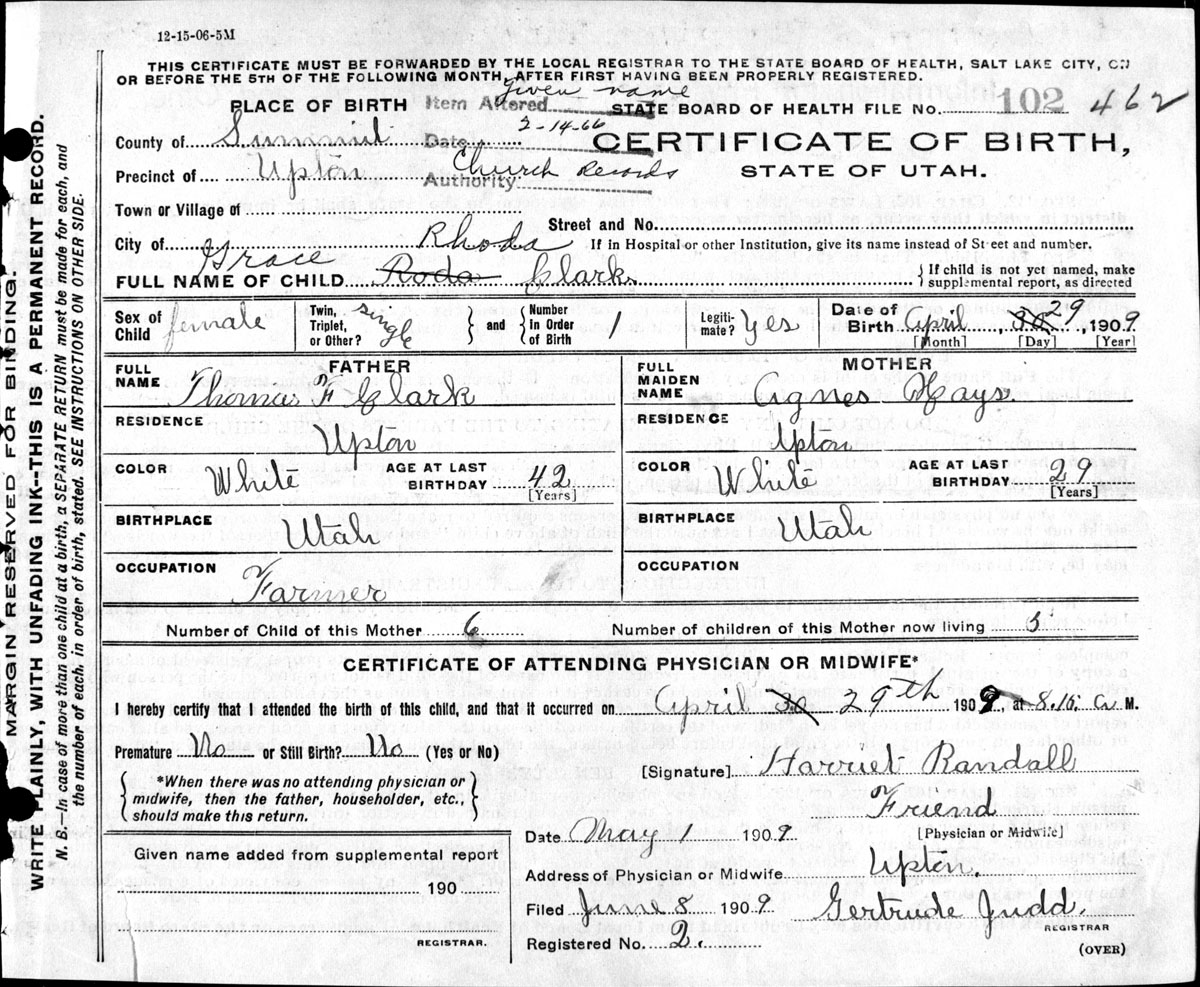 12-15-06-5M
THIS CERTIFICATE MUST BE FORWARDED BY THE LOCAL REGISTRAR TO THE STATE BOARD OF HEALTH, SALT LAKE CITY, ON
OR BEFORE THE 5TH OF THE FOLLOWING MONTH, AFTER FIRST HAVING BEEN PROPERLY REGISTERED.
PLACE OF BIRTH Item Altered Given name STATE BOARD OF HEALTH FILE No. 102 462
County of Summit Date 2-14-66 CERTIFICATE OF BIRTH,
Precinct of Upton Authority Church Records STATE OF UTAH.
Town or Village of
Street and No.
City of Rhoda If in Hospital or other Institution, give its name instead of Street and number.
FULL NAME OF CHILD Grace Roda Clark { If child is not yet named, make supplemental report, as directed
Sex of Child female Twin, Triplet, or Other? single } and { Number In Order of Birth 1 Legitimate? Yes Date of Birth April 30 29, 1909
[Month] [Day] [Year]
FATHER MOTHER
FULL NAME Thomas F Clark FULL MAIDEN NAME Agnes Hays.
RESIDENCE Upton RESIDENCE Upton
COLOR White AGE AT LAST BIRTHDAY 42 [Years] COLOR White AGE AT LAST BIRTHDAY 29 [Years]
BIRTHPLACE Utah BIRTHPLACE Utah
OCCUPATION Farmer OCCUPATION
Number of Child of this Mother 6 Number of children of this Mother now living 5
CERTIFICATE OF ATTENDING PHYSICIAN OR MIDWIFE*
I hereby certify that I attended the birth of this child, and that it occurred on April 30 29th 1909, at 8.15, a M.
Premature No or Still Birth? No (Yes or No)
*When there was no attending physician or
midwife, then the father, householder, etc.,
should make this return.
[Signature] Harriet Randall
Friend
Date May 1 1909 [Physician or Midwife]
Address of Physician or Midwife Upton.
Filed June 8 1909 Gertrude Judd.
REGISTRAR
Registered No. 2. (OVER)
Given name added from supplemental report
190
REGISTRAR.
MARGIN RESERVED FOR BINDING.
WRITE PLAINLY, WITH UNFADING INK--THIS IS A PERMANENT RECORD.
N. B.—In case of more than one child at a birth, a SEPARATE RETURN must be made for each, and
the number of each, in order of birth, stated. SEE INSTRUCTIONS ON OTHER SIDE.